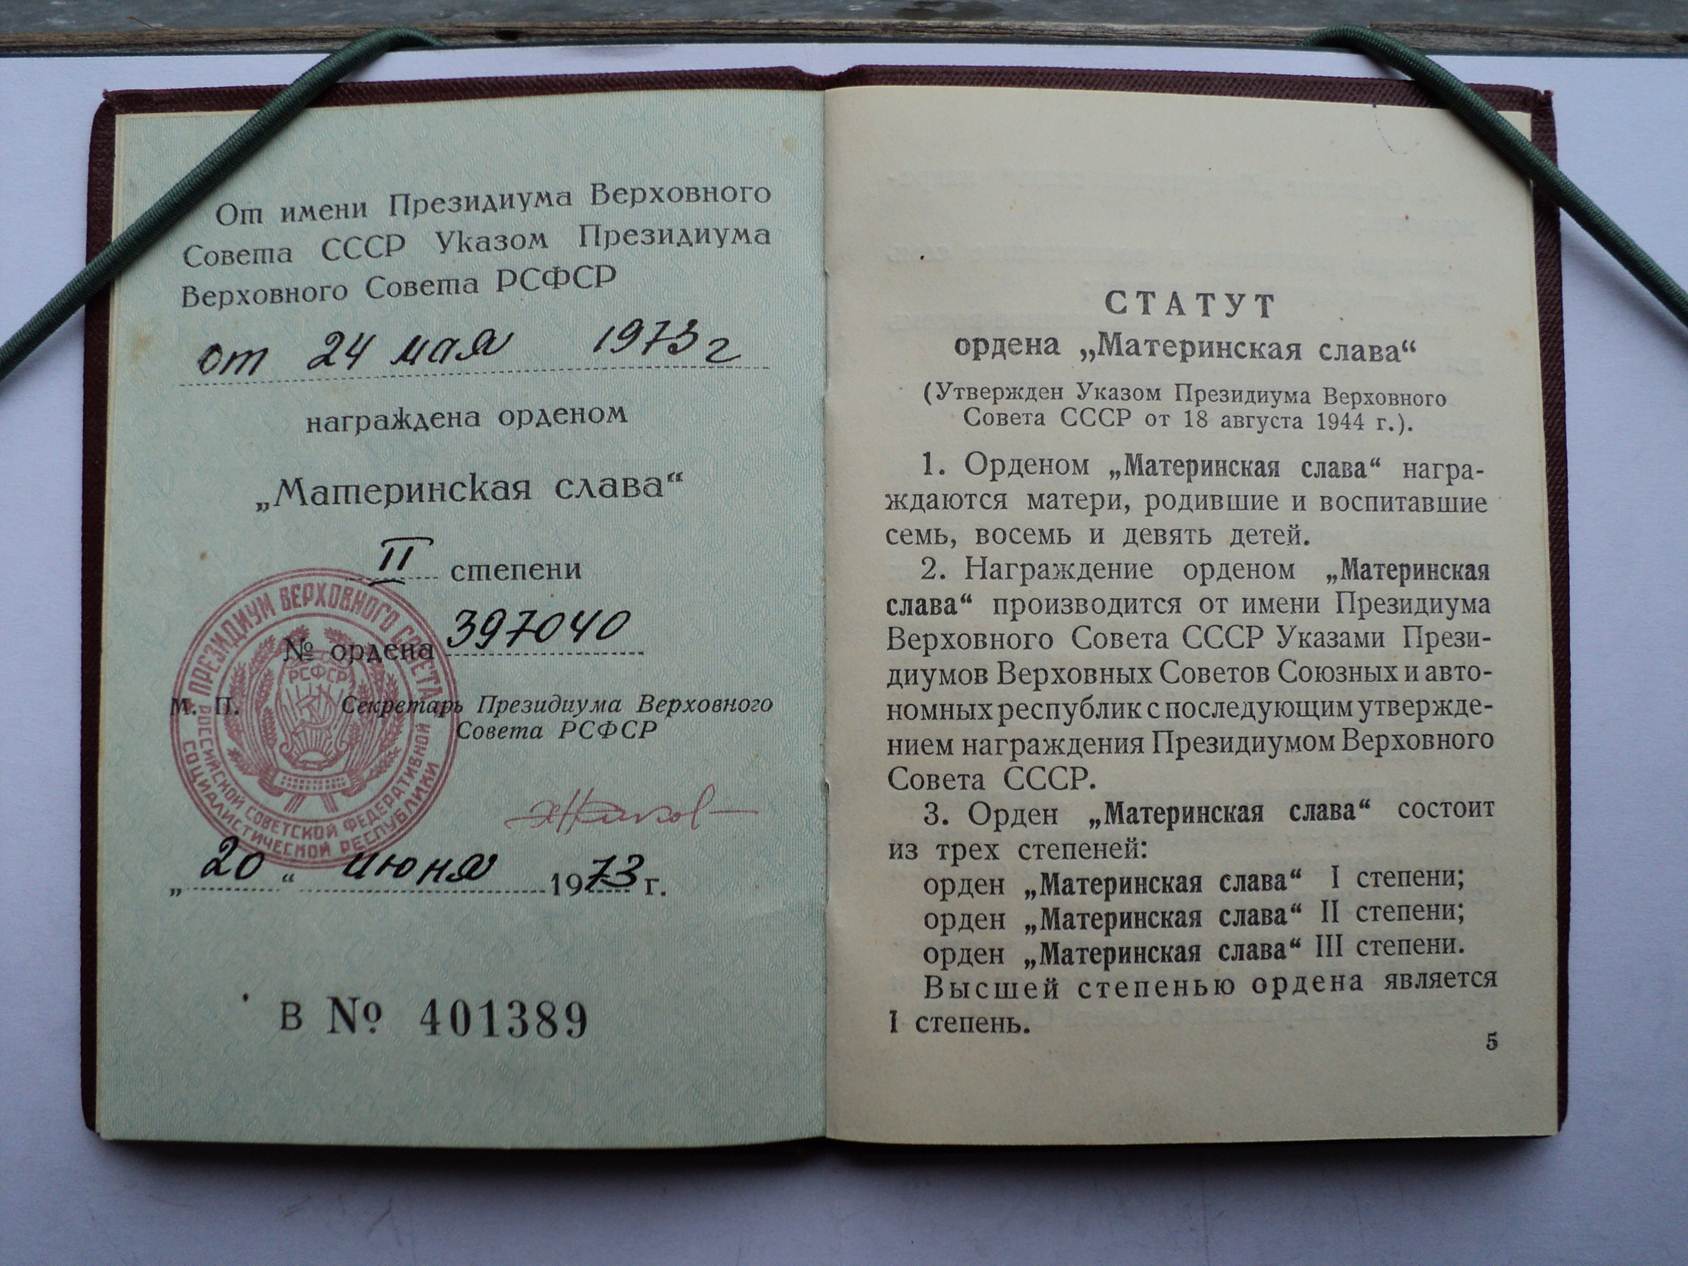 От имени Президиума Верховного
Совета СССР Указом Президиума
Верховного Совета РСФСР
от 24 мая 1973 г
награждена орденом
„Материнская слава“
II степени
№ ордена 397040
М. П. Секретарь Президиума Верховного
Совета РСФСР
„20“ июня 1973 г.
В № 401389
ПРЕЗИДИУМ ВЕРХОВНОГО СОВЕТА
РОССИЙСКОЙ СОВЕТСКОЙ ФЕДЕРАТИВНОЙ
СОЦИАЛИСТИЧЕСКОЙ РЕСПУБЛИКИ
РСФСР
СТАТУТ
ордена „Материнская слава“
(Утвержден Указом Президиума Верховного
Совета СССР от 18 августа 1944 г.).
1. Орденом „Материнская слава“ награ-
ждаются матери, родившие и воспитавшие
семь, восемь и девять детей.
2. Награждение орденом „Материнская
слава“ производится от имени Президиума
Верховного Совета СССР Указами Прези-
диумов Верховных Советов Союзных и авто-
номных республик с последующим утвержде-
нием награждения Президиумом Верховного
Совета СССР.
3. Орден „Материнская слава“ состоит
из трех степеней:
орден „Материнская слава“ I степени;
орден „Материнская слава“ II степени;
орден „Материнская слава“ III степени.
Высшей степенью ордена является
I степень.
5